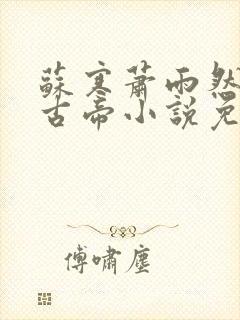 蘇寒蕭雨然
古帝小說免
傅嘯塵